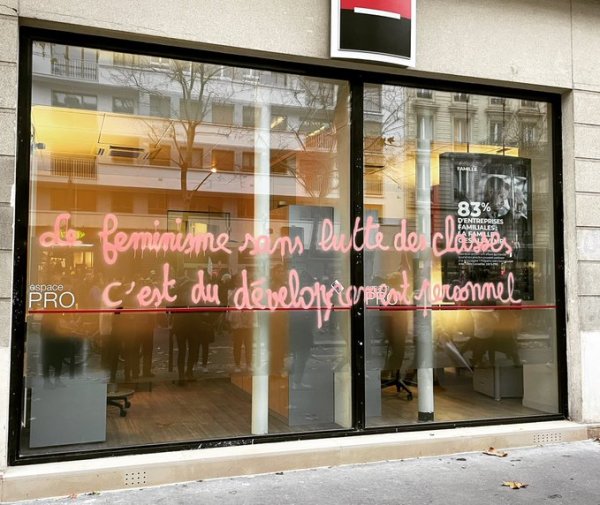 FAMILLE
83%
D'ENTREPRISES
FAMILIALES :
LA FAMILLE
Le feminisme sans lutte des classes,
c'est du développement personnel
espace
PRO
PRO